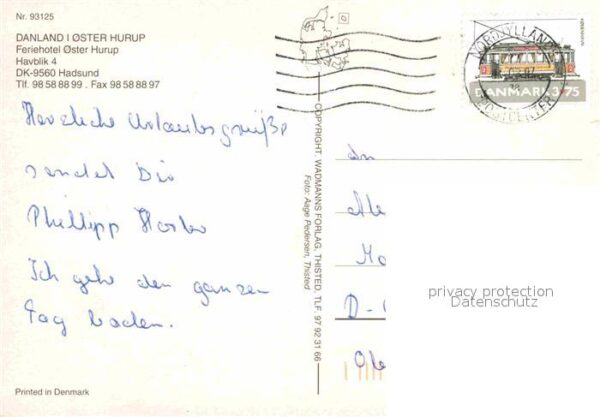 Nr. 93125
DANLAND I ØSTER HURUP
Feriehotel Øster Hurup
Havblik 4
DK-9560 Hadsund
Tlf. 98 58 88 99 . Fax 98 58 88 97
Herzliche Urlaubsgrüße
sendet Dir
Phillipp
Ich gehe den ganzen
Tag baden.
Printed in Denmark
COPYRIGHT. WADMANNS FORLAG, THISTED, TLF. 97 92 31 66
Foto: Aage Pedersen, Thisted
NORDJYLLANDS
POSTCENTER
DANMARK 3.75
An
D-
privacy protection
Datenschutz